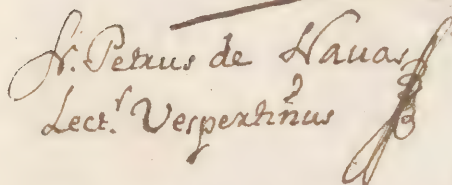 Fr. Petrus de Navas
Lect.r Vespertinus